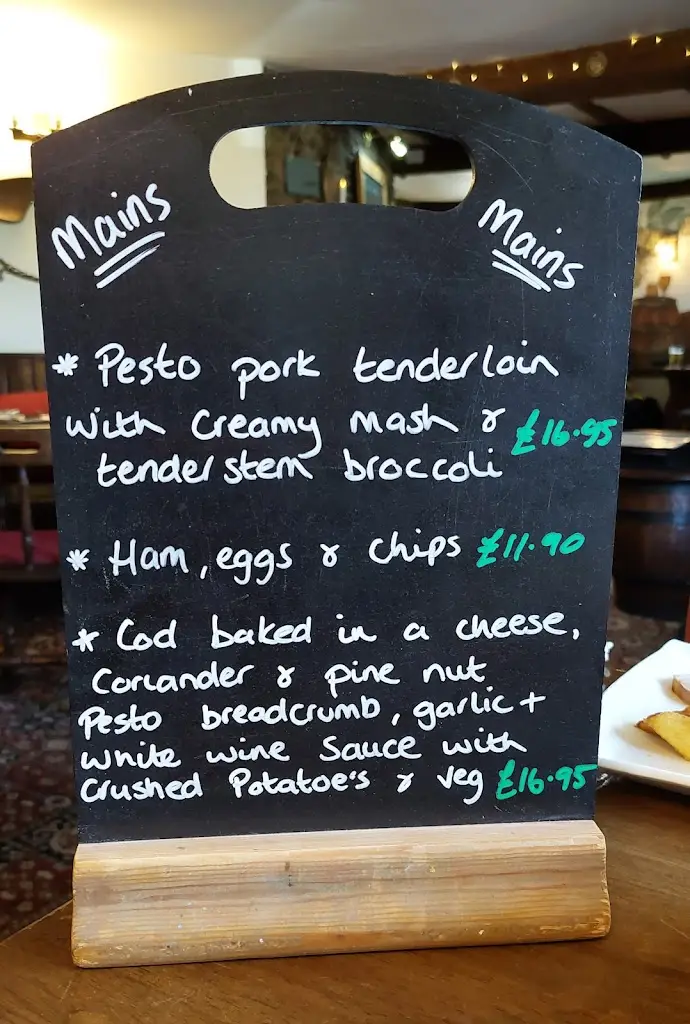 Mains
Mains
* Pesto pork tenderloin
with creamy mash & £16.95
tenderstem broccoli
* Ham, eggs & chips £11.90
* Cod baked in a cheese,
coriander & pine nut
Pesto breadcrumb, garlic +
white wine sauce with
crushed Potatoe's & veg £16.95